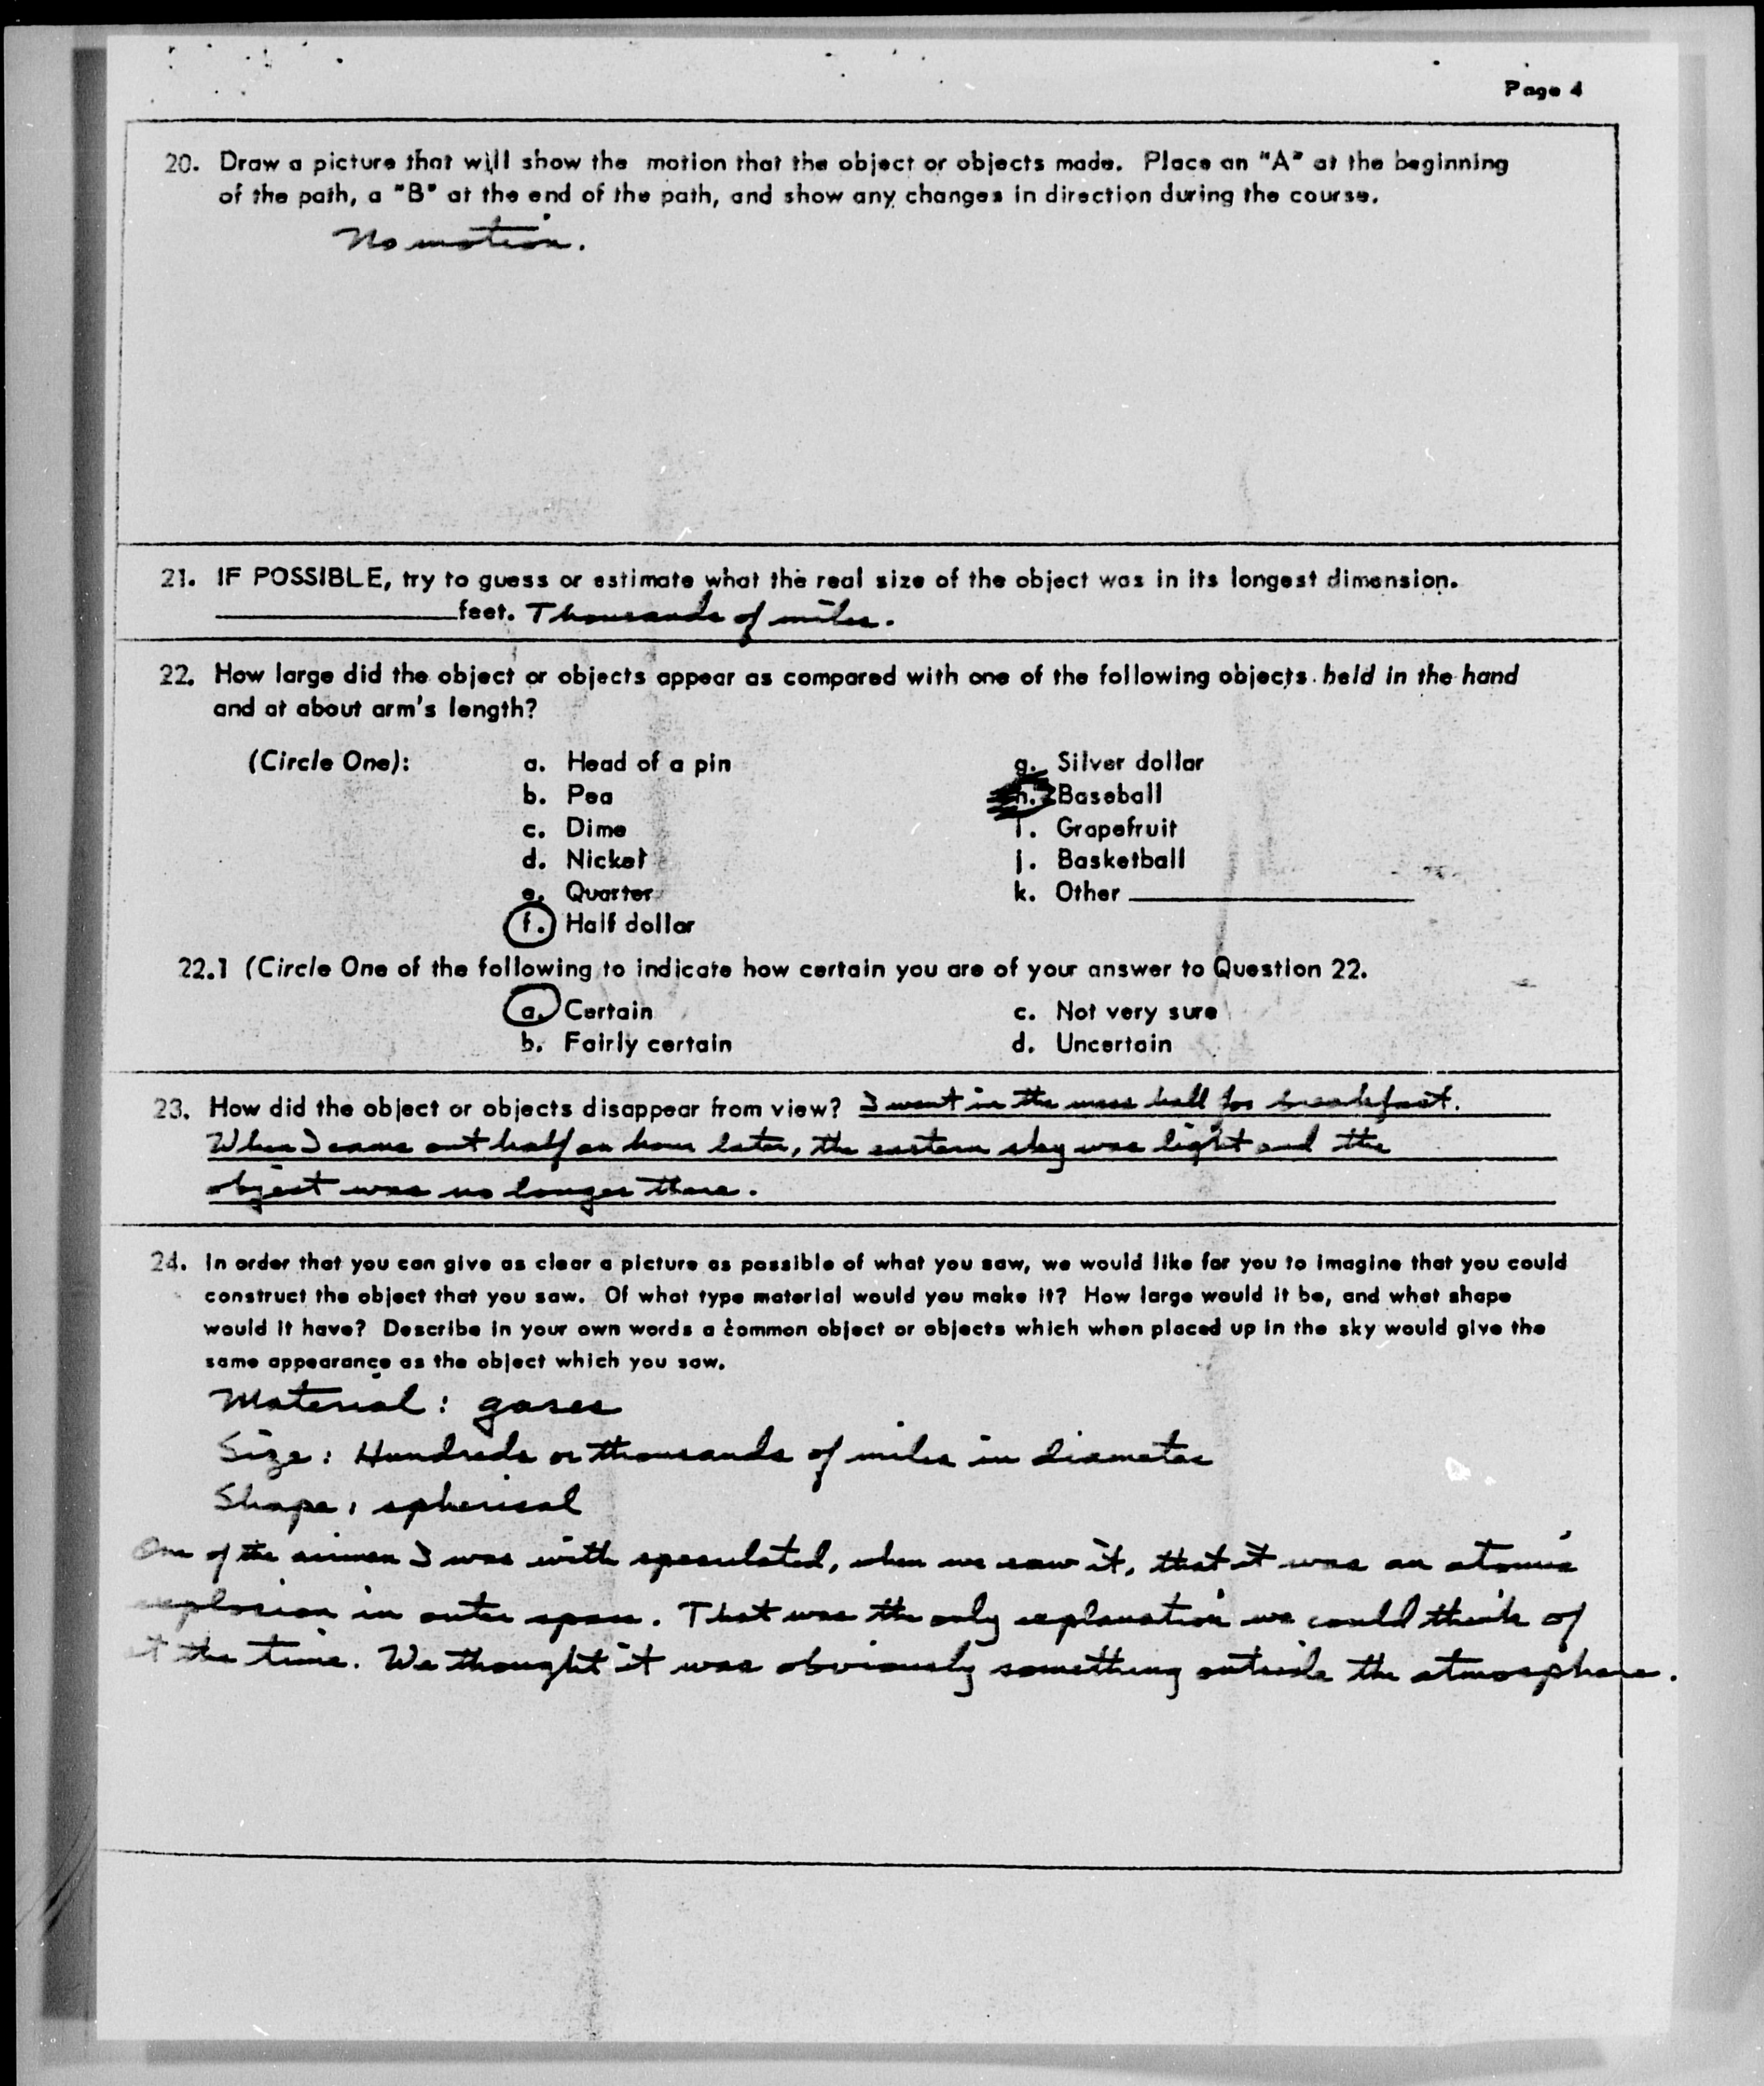 Page 4
20. Draw a picture that will show the motion that the object or objects made. Place an "A" at the beginning
of the path, a "B" at the end of the path, and show any changes in direction during the course.
No motion.
21. IF POSSIBLE, try to guess or estimate what the real size of the object was in its longest dimension.
____________ feet. Thousands of miles.
22. How large did the object or objects appear as compared with one of the following objects held in the hand
and at about arm's length?
(Circle One): a. Head of a pin g. Silver dollar
b. Pea h. Baseball
c. Dime i. Grapefruit
d. Nickel j. Basketball
e. Quarter k. Other ____________
f. Half dollar
22.1 (Circle One of the following to indicate how certain you are of your answer to Question 22.
a. Certain c. Not very sure
b. Fairly certain d. Uncertain
23. How did the object or objects disappear from view? I went in the mess hall for breakfast.
When I came out half an hour later, the eastern sky was light and the
object was no longer there.
24. In order that you can give as clear a picture as possible of what you saw, we would like for you to imagine that you could
construct the object that you saw. Of what type material would you make it? How large would it be, and what shape
would it have? Describe in your own words a common object or objects which when placed up in the sky would give the
same appearance as the object which you saw.
Material: gases
Size: Hundreds or thousands of miles in diameter
Shape: spherical
One of the airmen I was with speculated, when we saw it, that it was an atomic
explosion in outer space. That was the only explanation we could think of
at the time. We thought it was obviously something outside the atmosphere.